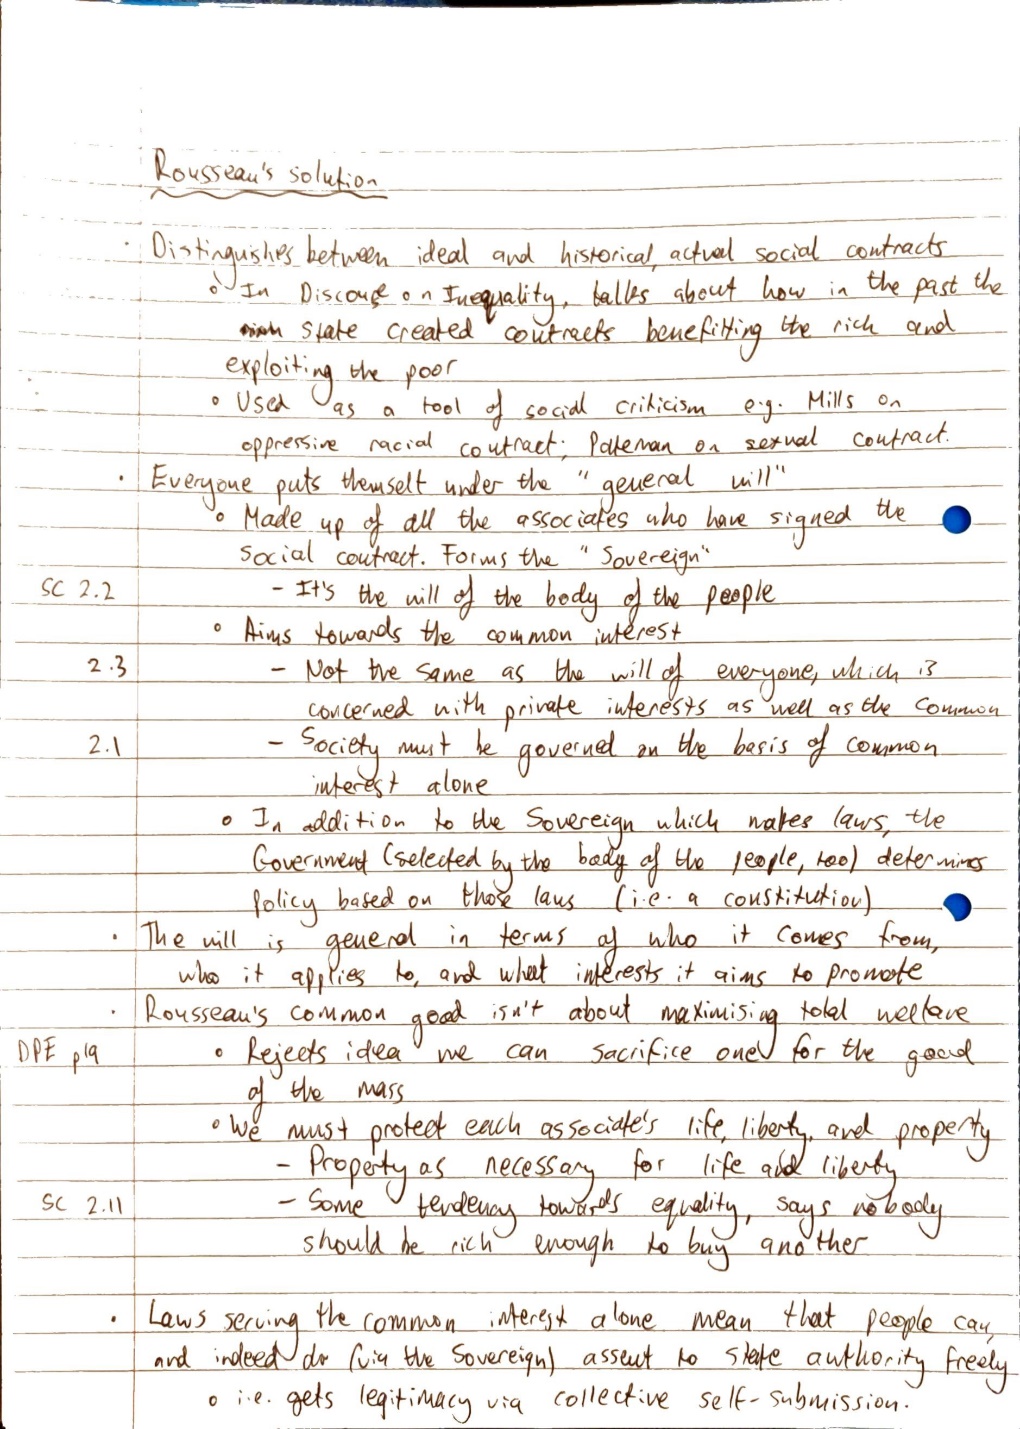 Rousseau's solution
· Distinguishes between ideal and historical, actual social contracts
∘ In Discourse on Inequality, talks about how in the past the
state created contracts benefitting the rich and
exploiting the poor
∘ Used as a tool of social criticism e.g. Mills on
oppressive racial contract; Pateman on sexual contract.
· Everyone puts themself under the "general will"
∘ Made up of all the associates who have signed the
social contract. Forms the "Sovereign"
SC 2.2 - It's the will of the body of the people
∘ Aims towards the common interest
2.3 - Not the same as the will of everyone, which is
concerned with private interests as well as the common
2.1 - Society must be governed on the basis of common
interest alone
∘ In addition to the Sovereign which makes laws, the
Government (selected by the body of the people, too) determines
policy based on those laws (i.e. a constitution)
· The will is general in terms of who it comes from,
who it applies to, and what interests it aims to promote
· Rousseau's common good isn't about maximising total welfare
DPE p19 ∘ Rejects idea we can sacrifice one for the good
of the mass
∘ We must protect each associate's life, liberty, and property
- Property as necessary for life and liberty
SC 2.11 - Some tendency towards equality, says nobody
should be rich enough to buy another
· Laws serving the common interest alone mean that people can,
and indeed do (via the Sovereign) assent to state authority freely
∘ i.e. gets legitimacy via collective self-submission.